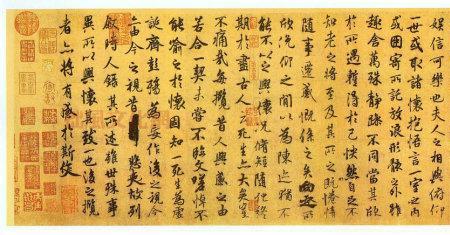 娛信可樂也夫人之相與俯仰
一世或取諸懷抱悟言一室之內
或因寄所託放浪形骸之外雖
趣舍萬殊靜躁不同當其欣
於所遇暫得於己怏然自足不
知老之將至及其所之既惓情
隨事遷感慨係之矣向之所
欣俛仰之間以為陳迹猶不
能不以之興懷況脩短隨化終
期於盡古人云死生亦大矣豈
不痛哉每攬昔人興感之由
若合一契未嘗不臨文嗟悼不
能喻之於懷固知一死生為虛
誕齊彭殤為妄作後之視今
亦由今之視昔悲夫故列
敘時人錄其所述雖世殊事
異所以興懷其致一也後之攬
者亦將有感於斯文